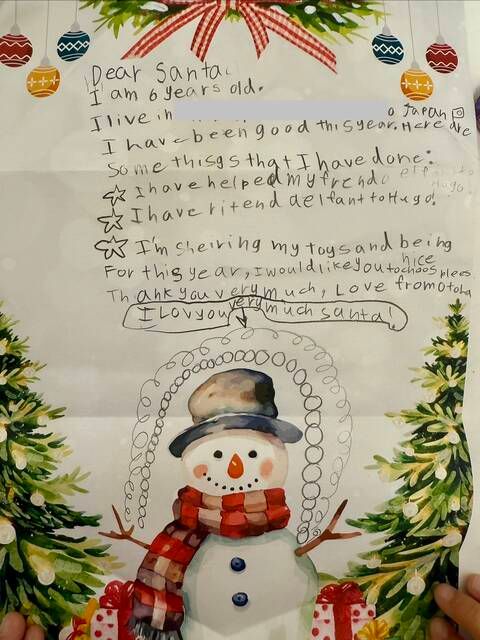 Dear Santa
I am 6 years old.
I live in Japan
I have been good this year. Here are
Some thisgs that I have done:
I have helped my frend
I have ritend a elfant to Hugo!
I'm sheiring my toys and being nice
For this year, I would like you to choos plees
Thank you very much, Love from otoha
I Lov you very much santa!